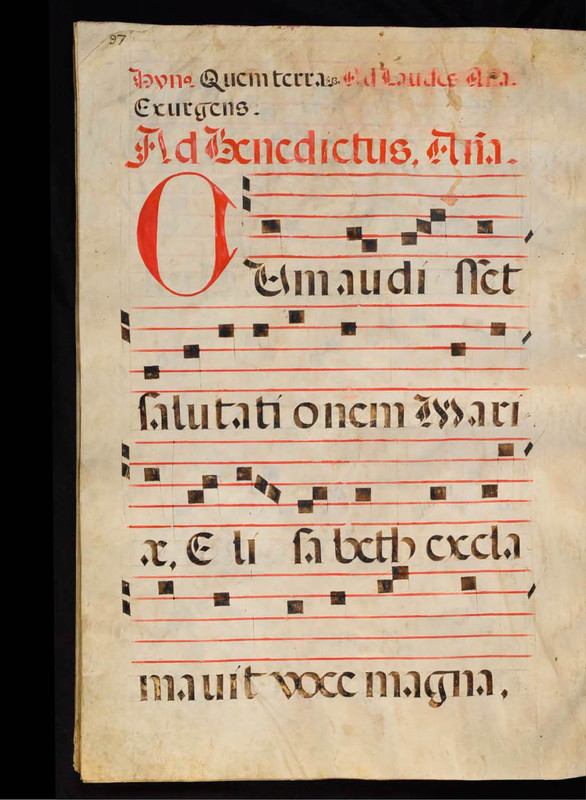 97
Hvnꝯ. Quem terra. Ad Laudes. Aña.
Exurgens.
Ad Benedictus. Aña.
CUm audi sſet
salutati onem Mari
æ, E li sa beth excla
mauit voce magna.